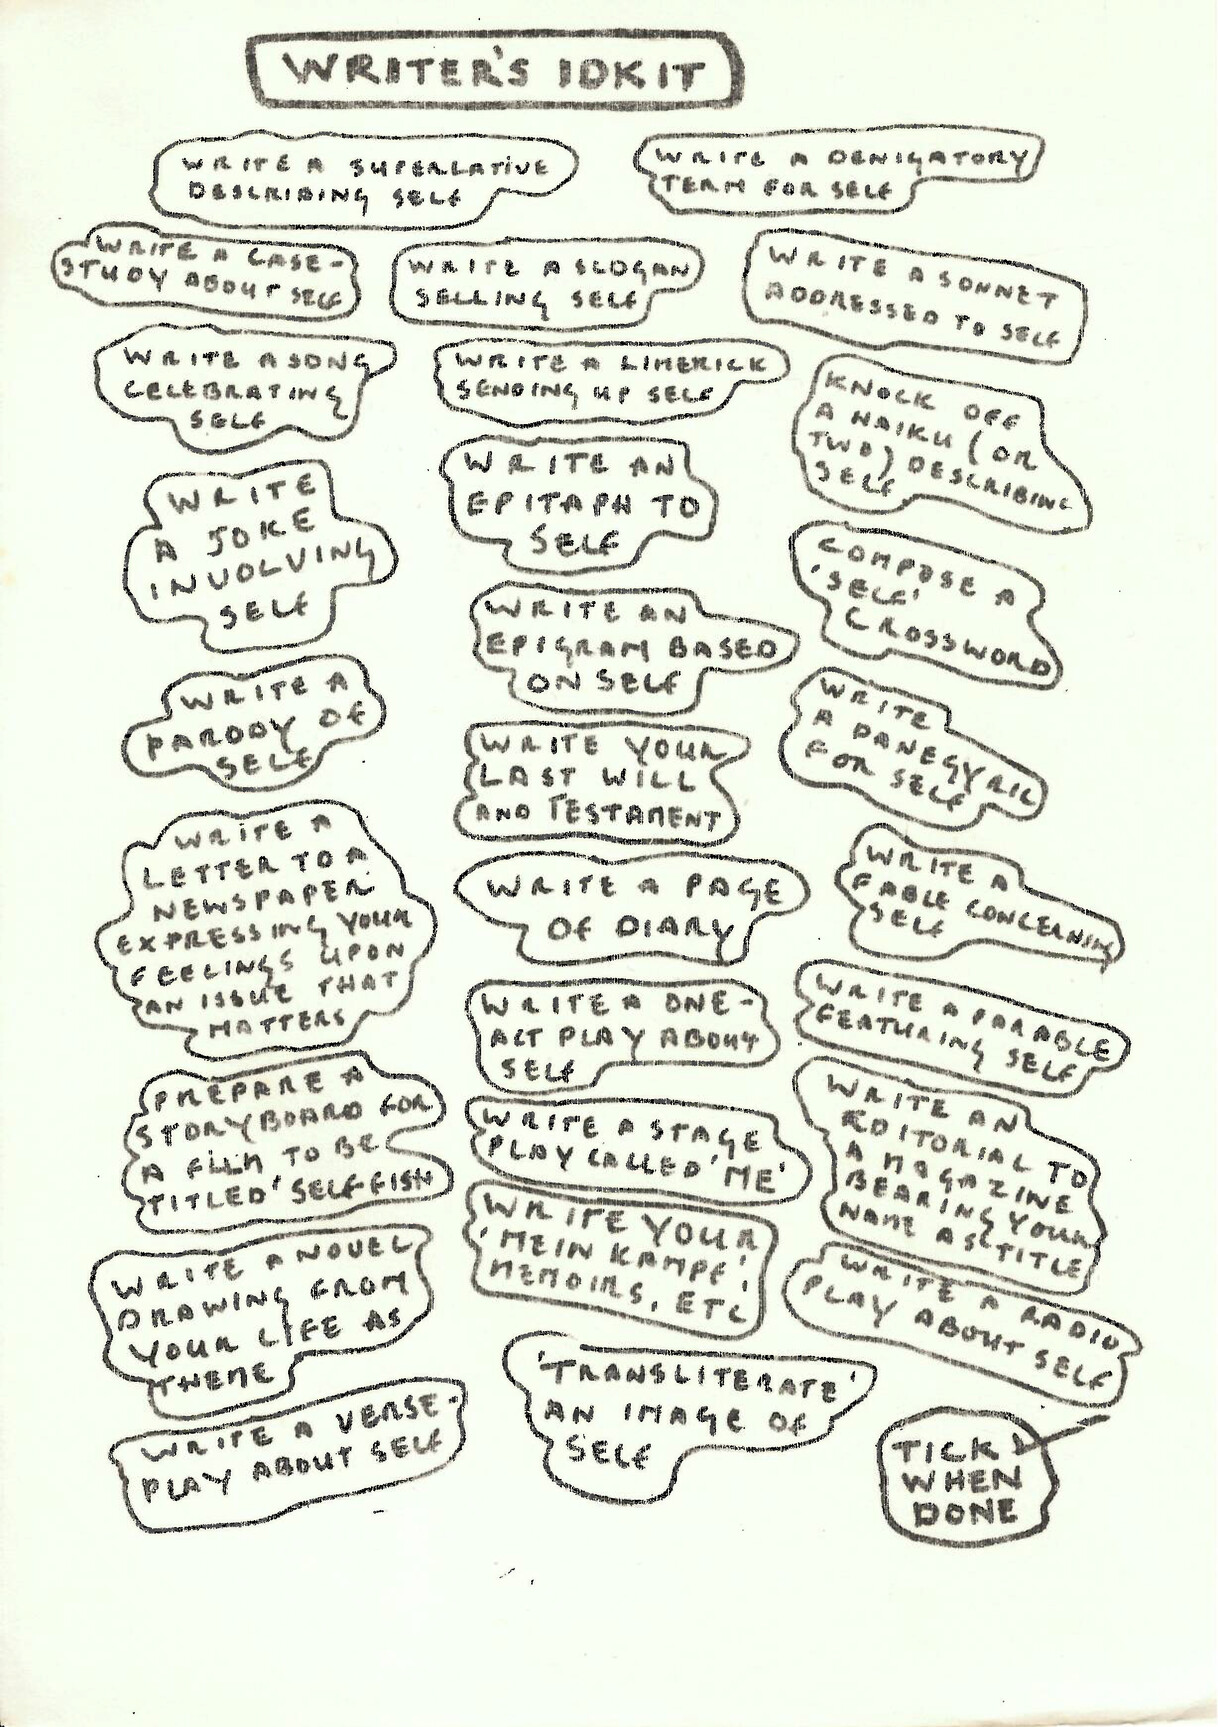 WRITER'S IDKIT
WRITE A SUPERLATIVE
DESCRIBING SELF
WRITE A DENIGATORY
TERM FOR SELF
WRITE A CASE-
STUDY ABOUT SELF
WRITE A SLOGAN
SELLING SELF
WRITE A SONNET
ADDRESSED TO SELF
WRITE A SONG
CELEBRATING
SELF
WRITE A LIMERICK
SENDING UP SELF
KNOCK OFF
A HAIKU (OR
TWO) DESCRIBING
SELF
WRITE
A JOKE
INVOLVING
SELF
WRITE AN
EPITAPH TO
SELF
COMPOSE A
'SELF'
CROSSWORD
WRITE AN
EPIGRAM BASED
ON SELF
WRITE A
PARODY OF
SELF
WRITE
A PANEGYRIC
FOR SELF
WRITE YOUR
LAST WILL
AND TESTAMENT
WRITE A
LETTER TO A
NEWSPAPER
EXPRESSING YOUR
FEELINGS UPON
AN ISSUE THAT
MATTERS
WRITE A PAGE
OF DIARY
WRITE A
FABLE CONCERNING
SELF
WRITE A ONE-
ACT PLAY ABOUT
SELF
WRITE A PARABLE
FEATURING SELF
PREPARE A
STORYBOARD FOR
A FILM TO BE
TITLED 'SELFFISH
WRITE A STAGE
PLAY CALLED 'ME'
WRITE AN
EDITORIAL TO
A MAGAZINE
BEARING YOUR
NAME AS TITLE
WRITE A NOVEL
DRAWING FROM
YOUR LIFE AS
THEME
WRITE YOUR
'MEIN KAMPF',
MEMOIRS, ETC
WRITE A RADIO
PLAY ABOUT SELF
WRITE A VERSE-
PLAY ABOUT SELF
'TRANSLITERATE'
AN IMAGE OF
SELF
TICK
WHEN
DONE